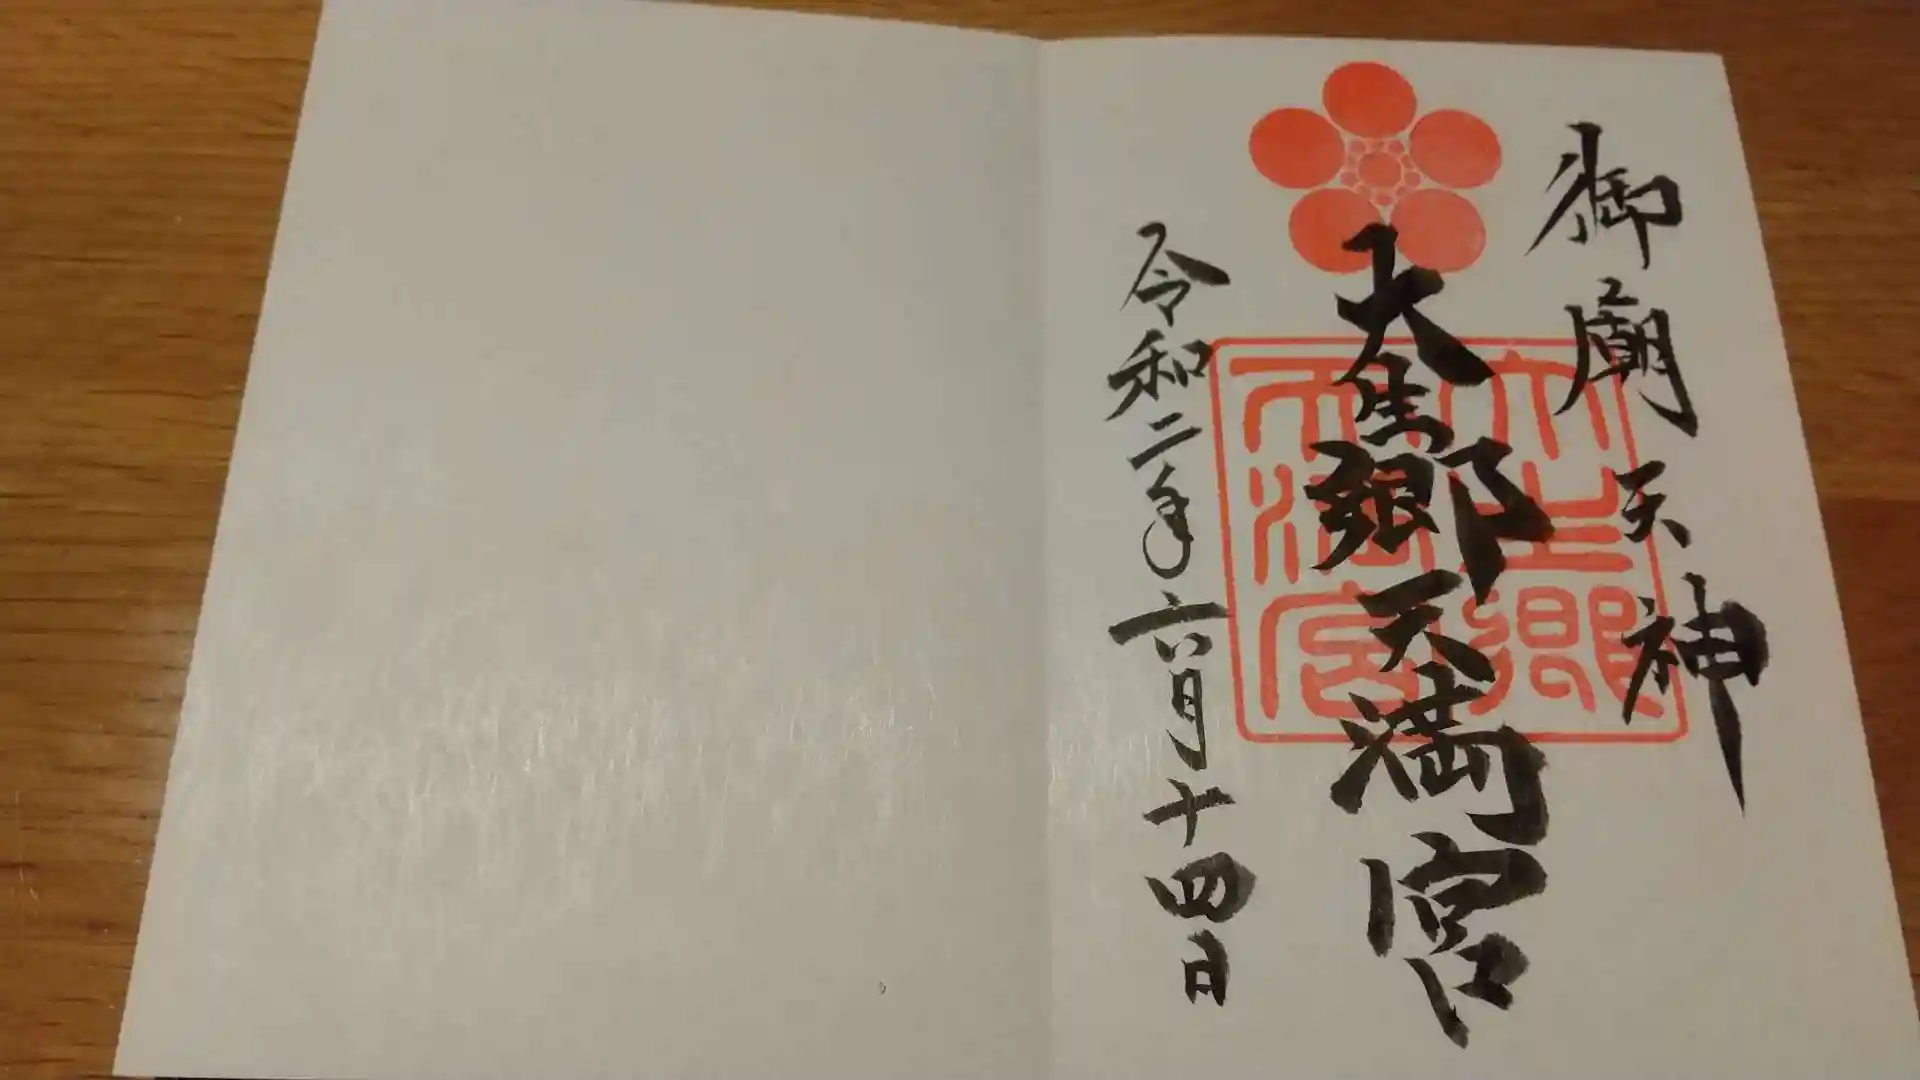 御廟天神
大生郷天満宮
令和二年六月十四日
大生郷
天満宮